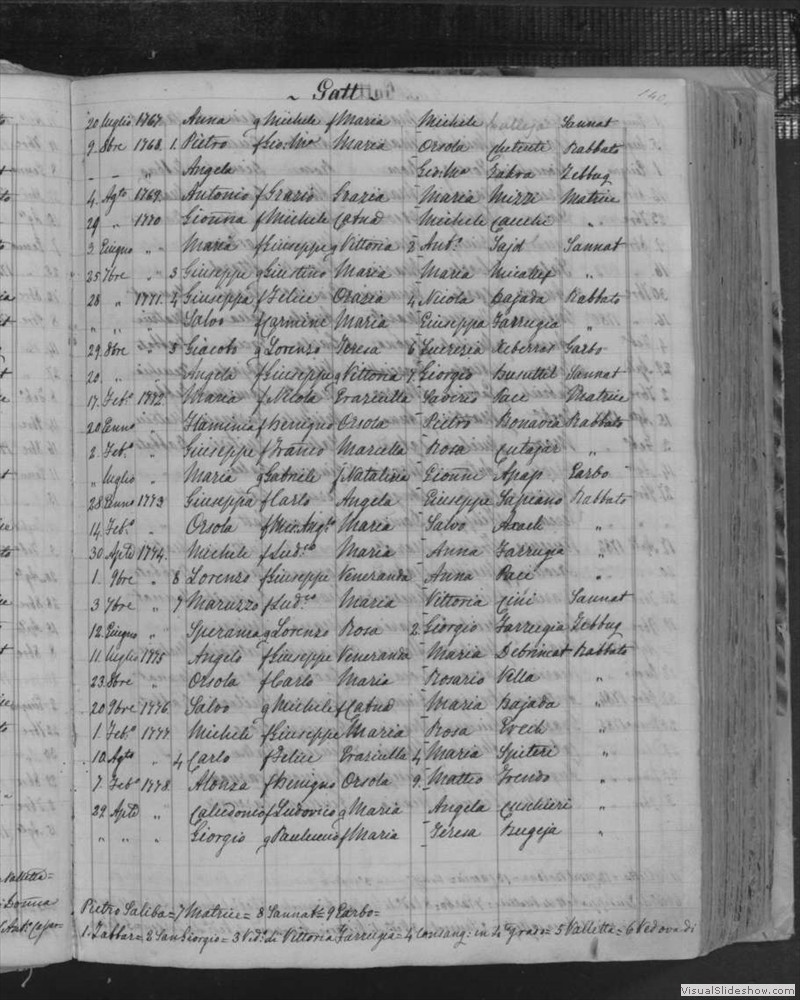 ~ Gatt ~
140.
20 luglio 1767 Anna q Michele f Maria Michele Calleja Sannat
9 8bre 1768 1 Pietro f Gio:Ma Maria Orsola Cutenti Rabbato
- - " Angela Gio:Ma Zabra Zebbug
4 Agto 1769 Antonio f Grazio Grazia Maria Mizzi Matrice
29 " 1770 Gionna f Michele Catna Michele Cauchi "
3 Giugno " Maria f Giuseppe q Vittoria 2 Anto Sajd Sannat
25 7bre " 3 Giuseppe q Giustino Maria Maria Micallef "
28 " 1771 4 Giuseppa f Felice Orazia 4 Nicola Bajada Rabbato
" " " Salvo f Carmine Maria Giuseppa Farrugia "
29 8bre " 5 Giacobo q Lorenzo Teresa 6 Lucrezia Xeberras Garbo
20 " " Angela f Giuseppe q Vittoria 7 Giorgio Busuttil Sannat
17 Feb° 1772 Maria f Nicola Graziulla Saverio Pace Matrice
20 Genno " Flaminia f Benigno Orsola Pietro Bonavia Rabbato
2 Feb° " Giuseppe f Franco Marcella Rosa Cutajar "
" luglio " Maria q Gabriele f Natalizia Gionni Apap Garbo
28 Genno 1773 Giuseppa f Carlo Angela Giuseppe Sapiano Rabbato
14 Feb° " Orsola f Mic:Ang:lo Maria Salvo Axach "
30 Aple 1774 Michele f Lud:co Maria Anna Farrugia "
1 9bre " 8 Lorenzo f Giuseppe Veneranda Anna Pace "
3 7bre " 7 Maruzzo f Lud:co Maria Vittoria Cini Sannat
12 Giugno " Speranza q Lorenzo Rosa 2 Giorgio Farrugia Zebbug
11 luglio 1775 Angelo f Giuseppe Veneranda Maria Debrincat Rabbato
23 8bre " Orsola f Carlo Maria Rosario Vella "
20 9bre 1776 Salvo q Michele f Catna Maria Bajada "
1 Feb° 1777 Michele f Giuseppe Maria Rosa Grech "
10 Agto " 4 Carlo f Felice Graziulla 4 Maria Spiteri "
7 Feb° 1778 Alonza f Benigno Orsola 9 Matteo Frendo "
29 Aple " Caledonio f Ludovico q Maria Angela Cuschieri "
" " " Giorgio q Paulucio f Maria Teresa Bugeja "
Pietro Saliba = 7 Matrice = 8 Sannat = 9 Garbo =
1. Zabbar = 2 San Giorgio = 3 Vid: di Vittoria Farrugia = 4 Consang: in 4° grado = 5 Valletta = 6 Vedova di
Valletta =
VisualSlideshow.com